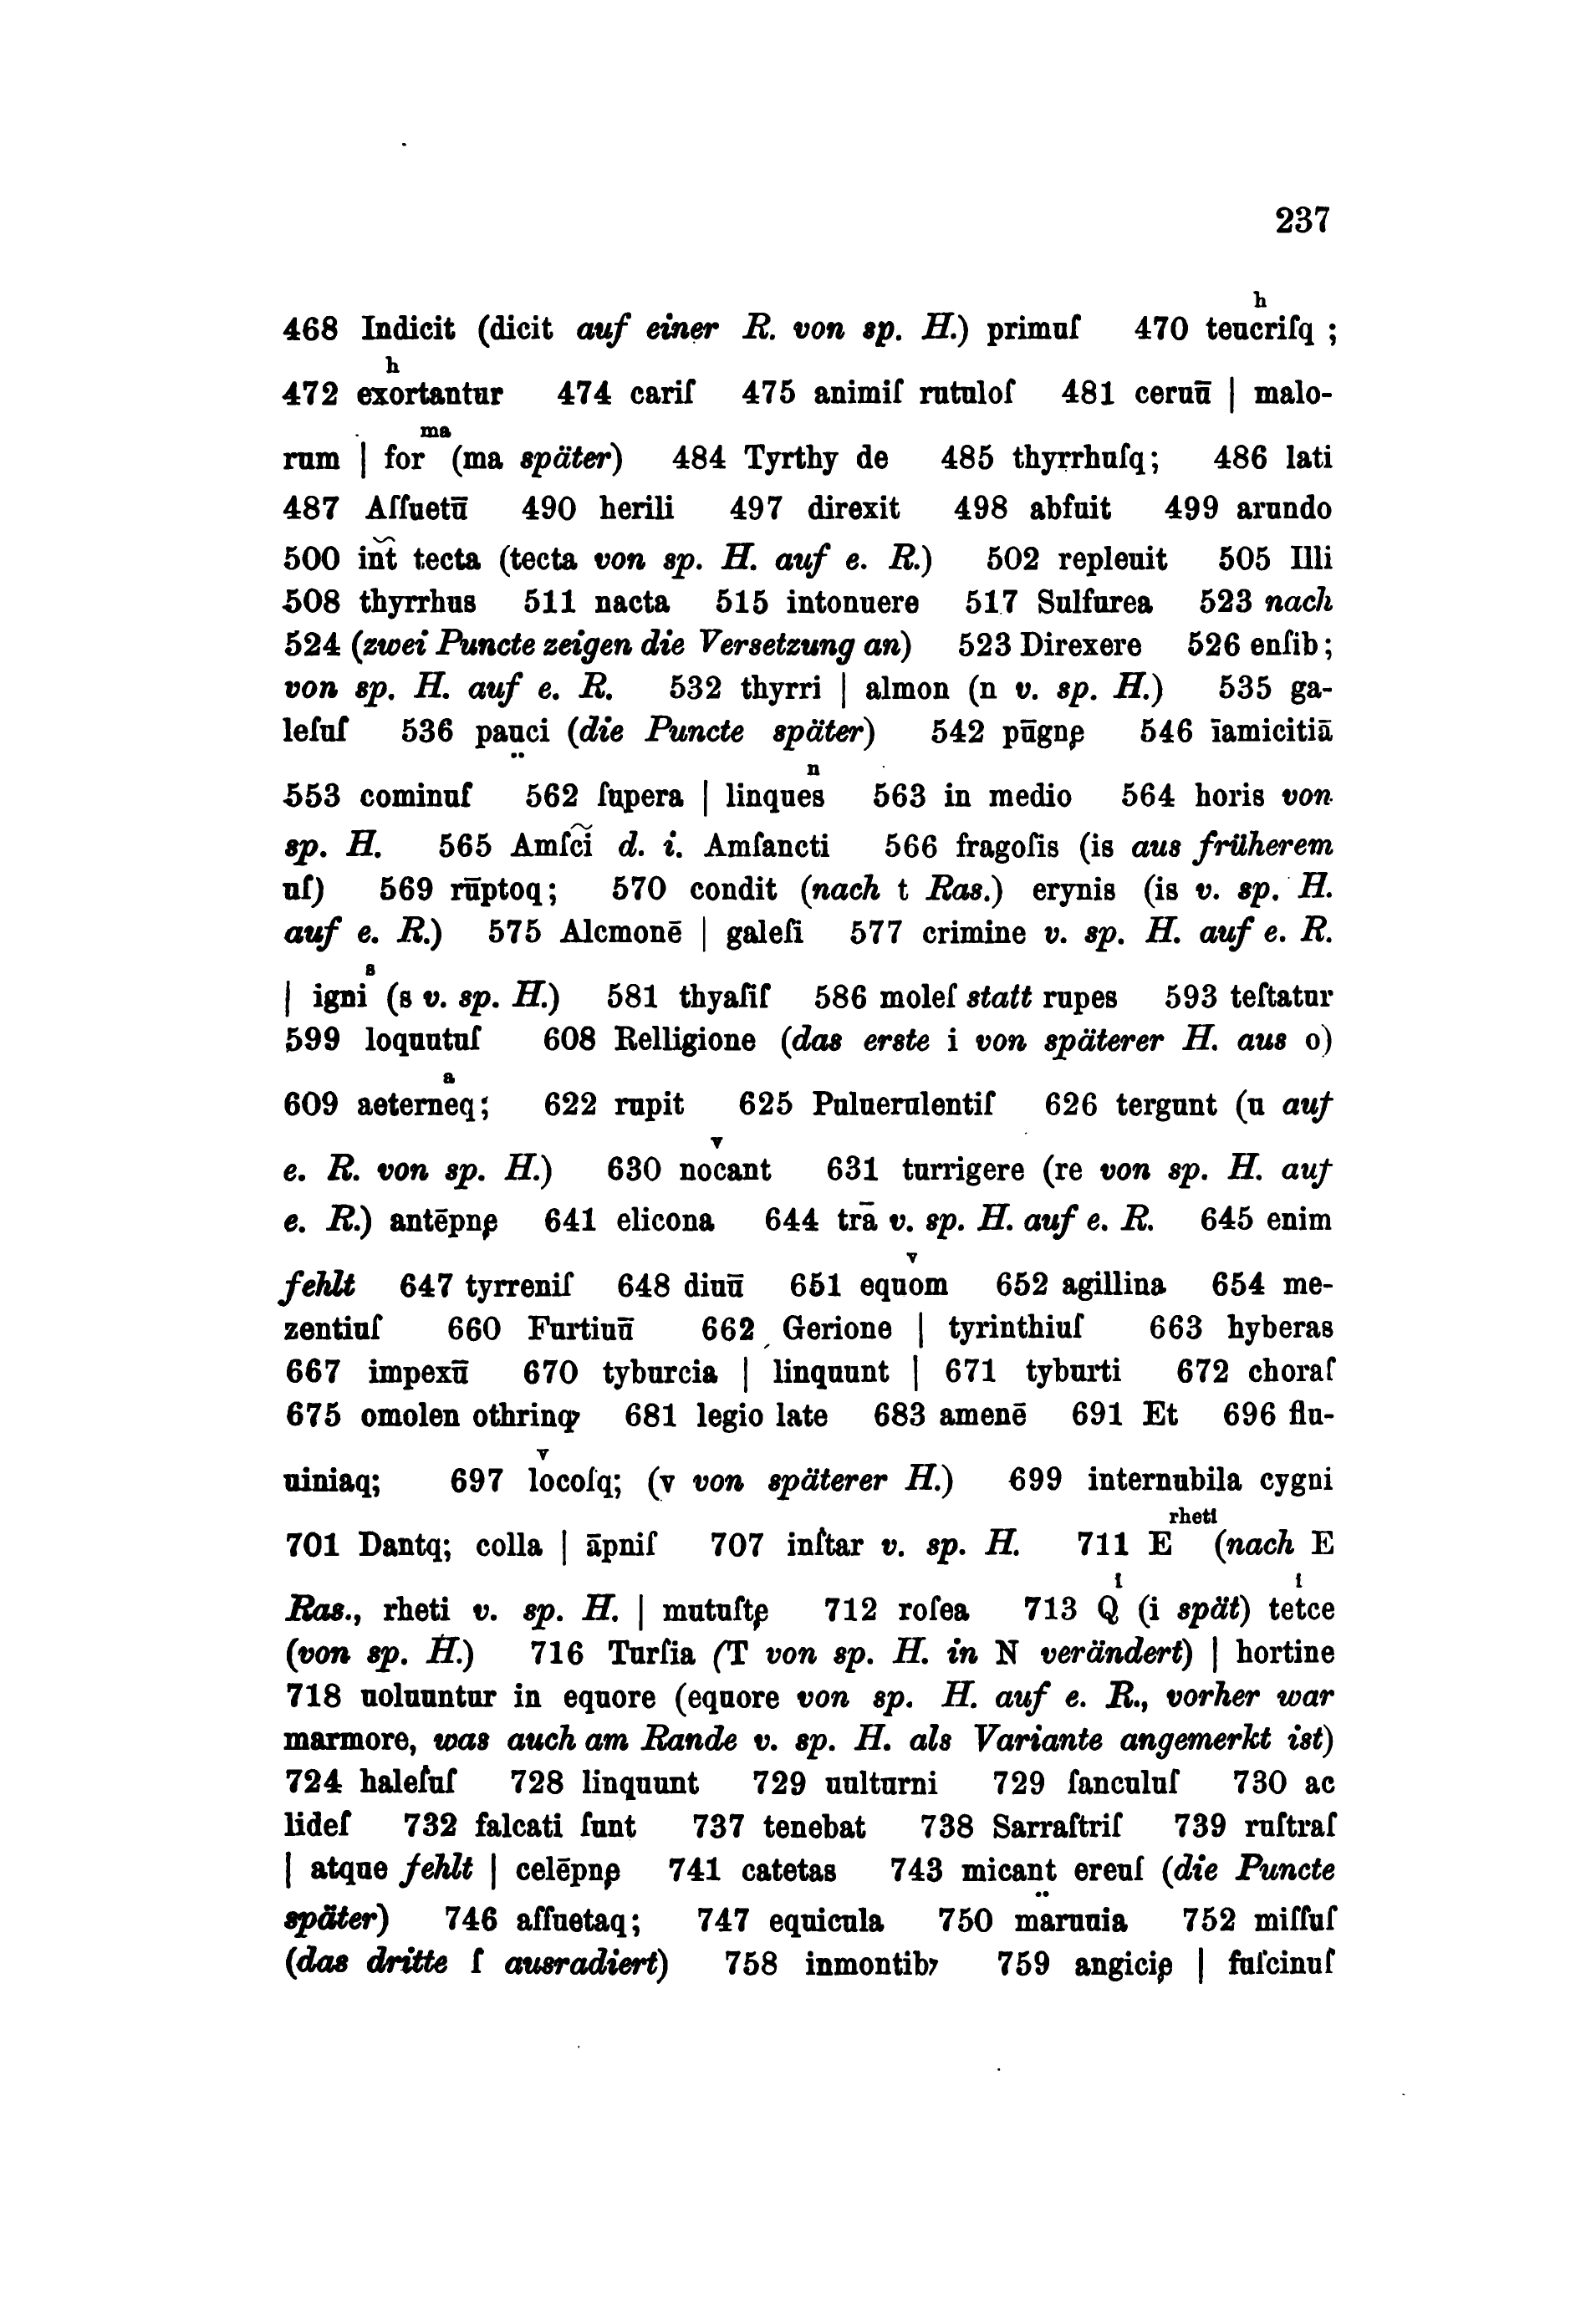 237
h
468 Indicit (dicit auf einer R. von sp. H.) primuſ 470 teucriſq ;
h
472 exortantur 474 cariſ 475 animiſ rutuloſ 481 ceruū | malo-
ma
rum | for (ma später) 484 Tyrthy de 485 thyrrhuſq; 486 lati
487 Aſſuetū 490 herili 497 direxit 498 abfuit 499 arundo
500 int͠ tecta (tecta von sp. H. auf e. R.) 502 repleuit 505 Illi
508 thyrrhus 511 nacta 515 intonuere 517 Sulfurea 523 nach
524 (zwei Puncte zeigen die Versetzung an) 523 Direxere 526 enſib;
von sp. H. auf e. R. 532 thyrri | almon (n v. sp. H.) 535 ga-
leſuſ 536 paṳci (die Puncte später) 542 pūgnę 546 īamicitiā
n
553 cominuſ 562 ſupera | linques 563 in medio 564 horis von
sp. H. 565 Amſc͠i d. i. Amſancti 566 fragoſis (is aus früherem
uſ) 569 rūptoq; 570 condit (nach t Ras.) erynis (is v. sp. H.
auf e. R.) 575 Alcmonē | galeſi 577 crimine v. sp. H. auf e. R.
s
| igni (s v. sp. H.) 581 thyaſiſ 586 moleſ statt rupes 593 teſtatur
599 loquutuſ 608 Relligione (das erste i von späterer H. aus o)
a
609 aeterneq; 622 rupit 625 Puluerulentiſ 626 tergunt (u auf
v
e. R. von sp. H.) 630 nocant 631 turrigere (re von sp. H. auf
e. R.) antēpnę 641 elicona 644 trā v. sp. H. auf e. R. 645 enim
v
fehlt 647 tyrreniſ 648 diuū 651 equom 652 agillina 654 me-
zentiuſ 660 Furtiuū 662 Gerione | tyrinthiuſ 663 hyberas
667 impexū 670 tyburcia | linquunt | 671 tyburti 672 choraſ
675 omolen othrinꝙ 681 legio late 683 amenē 691 Et 696 flu-
v
uiniaq; 697 locoſq; (v von späterer H.) 699 internubila cygni
rheti
701 Dantq; colla | āpniſ 707 inſtar v. sp. H. 711 E (nach E
i i
Ras., rheti v. sp. H. | mutuſtę 712 roſea 713 Q (i spät) tetce
(von sp. H.) 716 Turſia (T von sp. H. in N verändert) | hortine
718 uoluuntur in equore (equore von sp. H. auf e. R., vorher war
marmore, was auch am Rande v. sp. H. als Variante angemerkt ist)
724 haleſuſ 728 linquunt 729 uulturni 729 ſanculuſ 730 ac
lideſ 732 falcati ſunt 737 tenebat 738 Sarraſtriſ 739 ruſtraſ
| atque fehlt | celēpnę 741 catetas 743 mican̤t ereuſ (die Puncte
später) 746 aſſuetaq; 747 equicula 750 maruuia 752 miſſuſ
(das dritte ſ ausradiert) 758 inmontibꝫ 759 angicię | fuſcinuſ